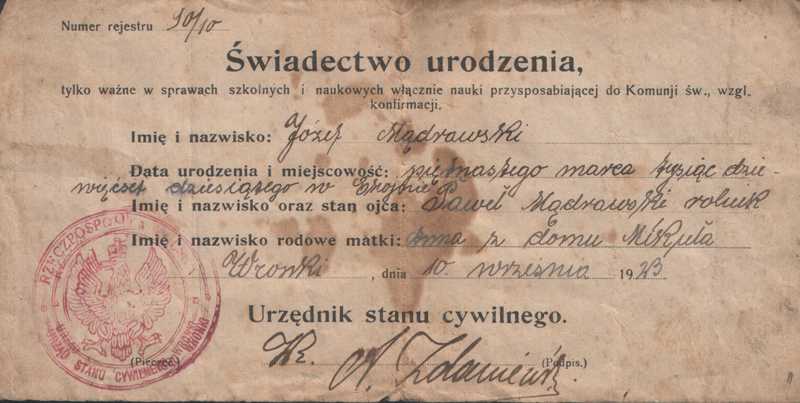 Numer rejestru 90/10
Świadectwo urodzenia,
tylko ważne w sprawach szkolnych i naukowych włącznie nauki przysposabiającej do Komunji św., wzgl.
konfirmacji.
Imię i nazwisko: Józef Mądrawski
Data urodzenia i miejscowość: piętnastego marca tysiąc dzie-
więćset dziesiątego w Chojnie
Imię i nazwisko oraz stan ojca: Paweł Mądrawski rolnik
Imię i nazwisko rodowe matki: Anna z domu Mikuła
Wronki, dnia 10. września 1923
Urzędnik stanu cywilnego.
(Pieczęć.) (Podpis.)
RZECZPOSPOLITA
URZĄD STANU CYWILNEGO
WRONKI